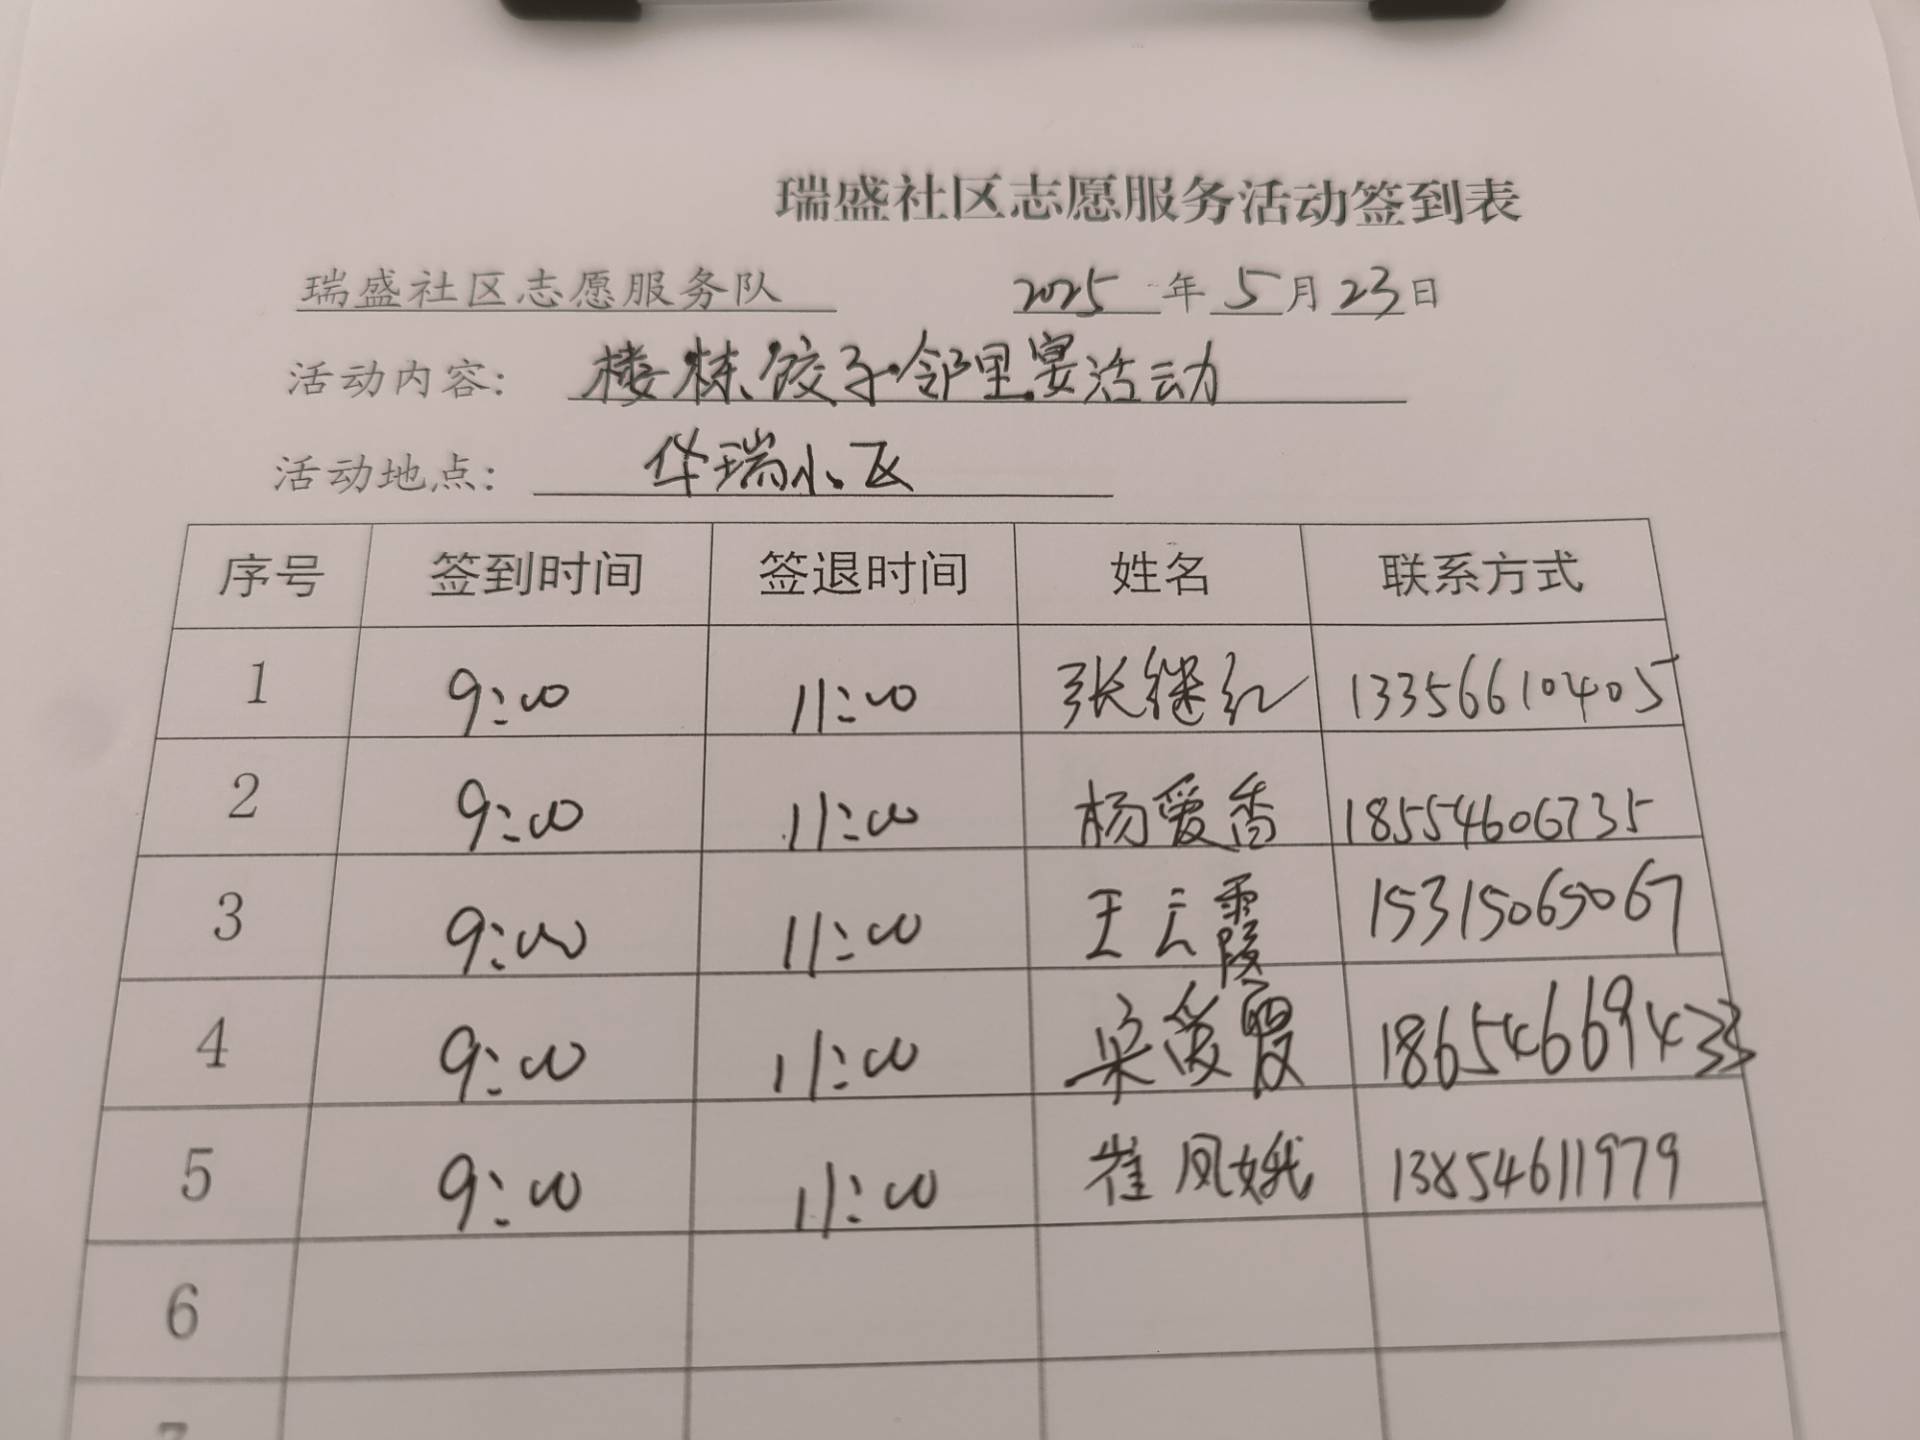 瑞盛社区志愿服务活动签到表
瑞盛社区志愿服务队 2025年5月23日
活动内容: 楼栋饺子邻里宴活动
活动地点: 华瑞小区
序号 签到时间 签退时间 姓名 联系方式
1 9:00 11:00 张继红 13356610405
2 9:00 11:00 杨爱香 18554606735
3 9:00 11:00 王云霞 15315065067
4 9:00 11:00 宋爱霞 18654669433
5 9:00 11:00 崔凤娥 13854611979
6
7